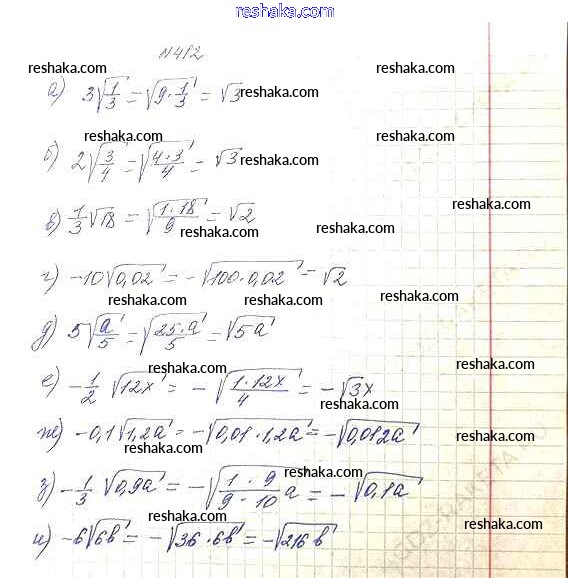 reshaka.com
N412
reshaka.com reshaka.com
а) 3√(1/3) = √(9·1/3) = √3
reshaka.com
reshaka.com
б) 2√(3/4) = √(4·3/4) = √3
reshaka.com
reshaka.com
в) 1/3 √18 = √(1·18/9) = √2
reshaka.com reshaka.com
г) -10√0,02 = -√(100·0,02) = √2
reshaka.com reshaka.com
д) 5√(a/5) = √(25·a/5) = √5a
reshaka.com reshaka.com
е) -1/2 √12x = -√(1·12x/4) = -√3x
reshaka.com
ж) -0,1√1,2a = -√(0,01·1,2a) = -√0,012a
reshaka.com
reshaka.com
з) -1/3 √0,9a = -√(1/9·9/10 a) = -√0,1a
reshaka.com reshaka.com
и) -6√6b = -√(36·6b) = -√216b